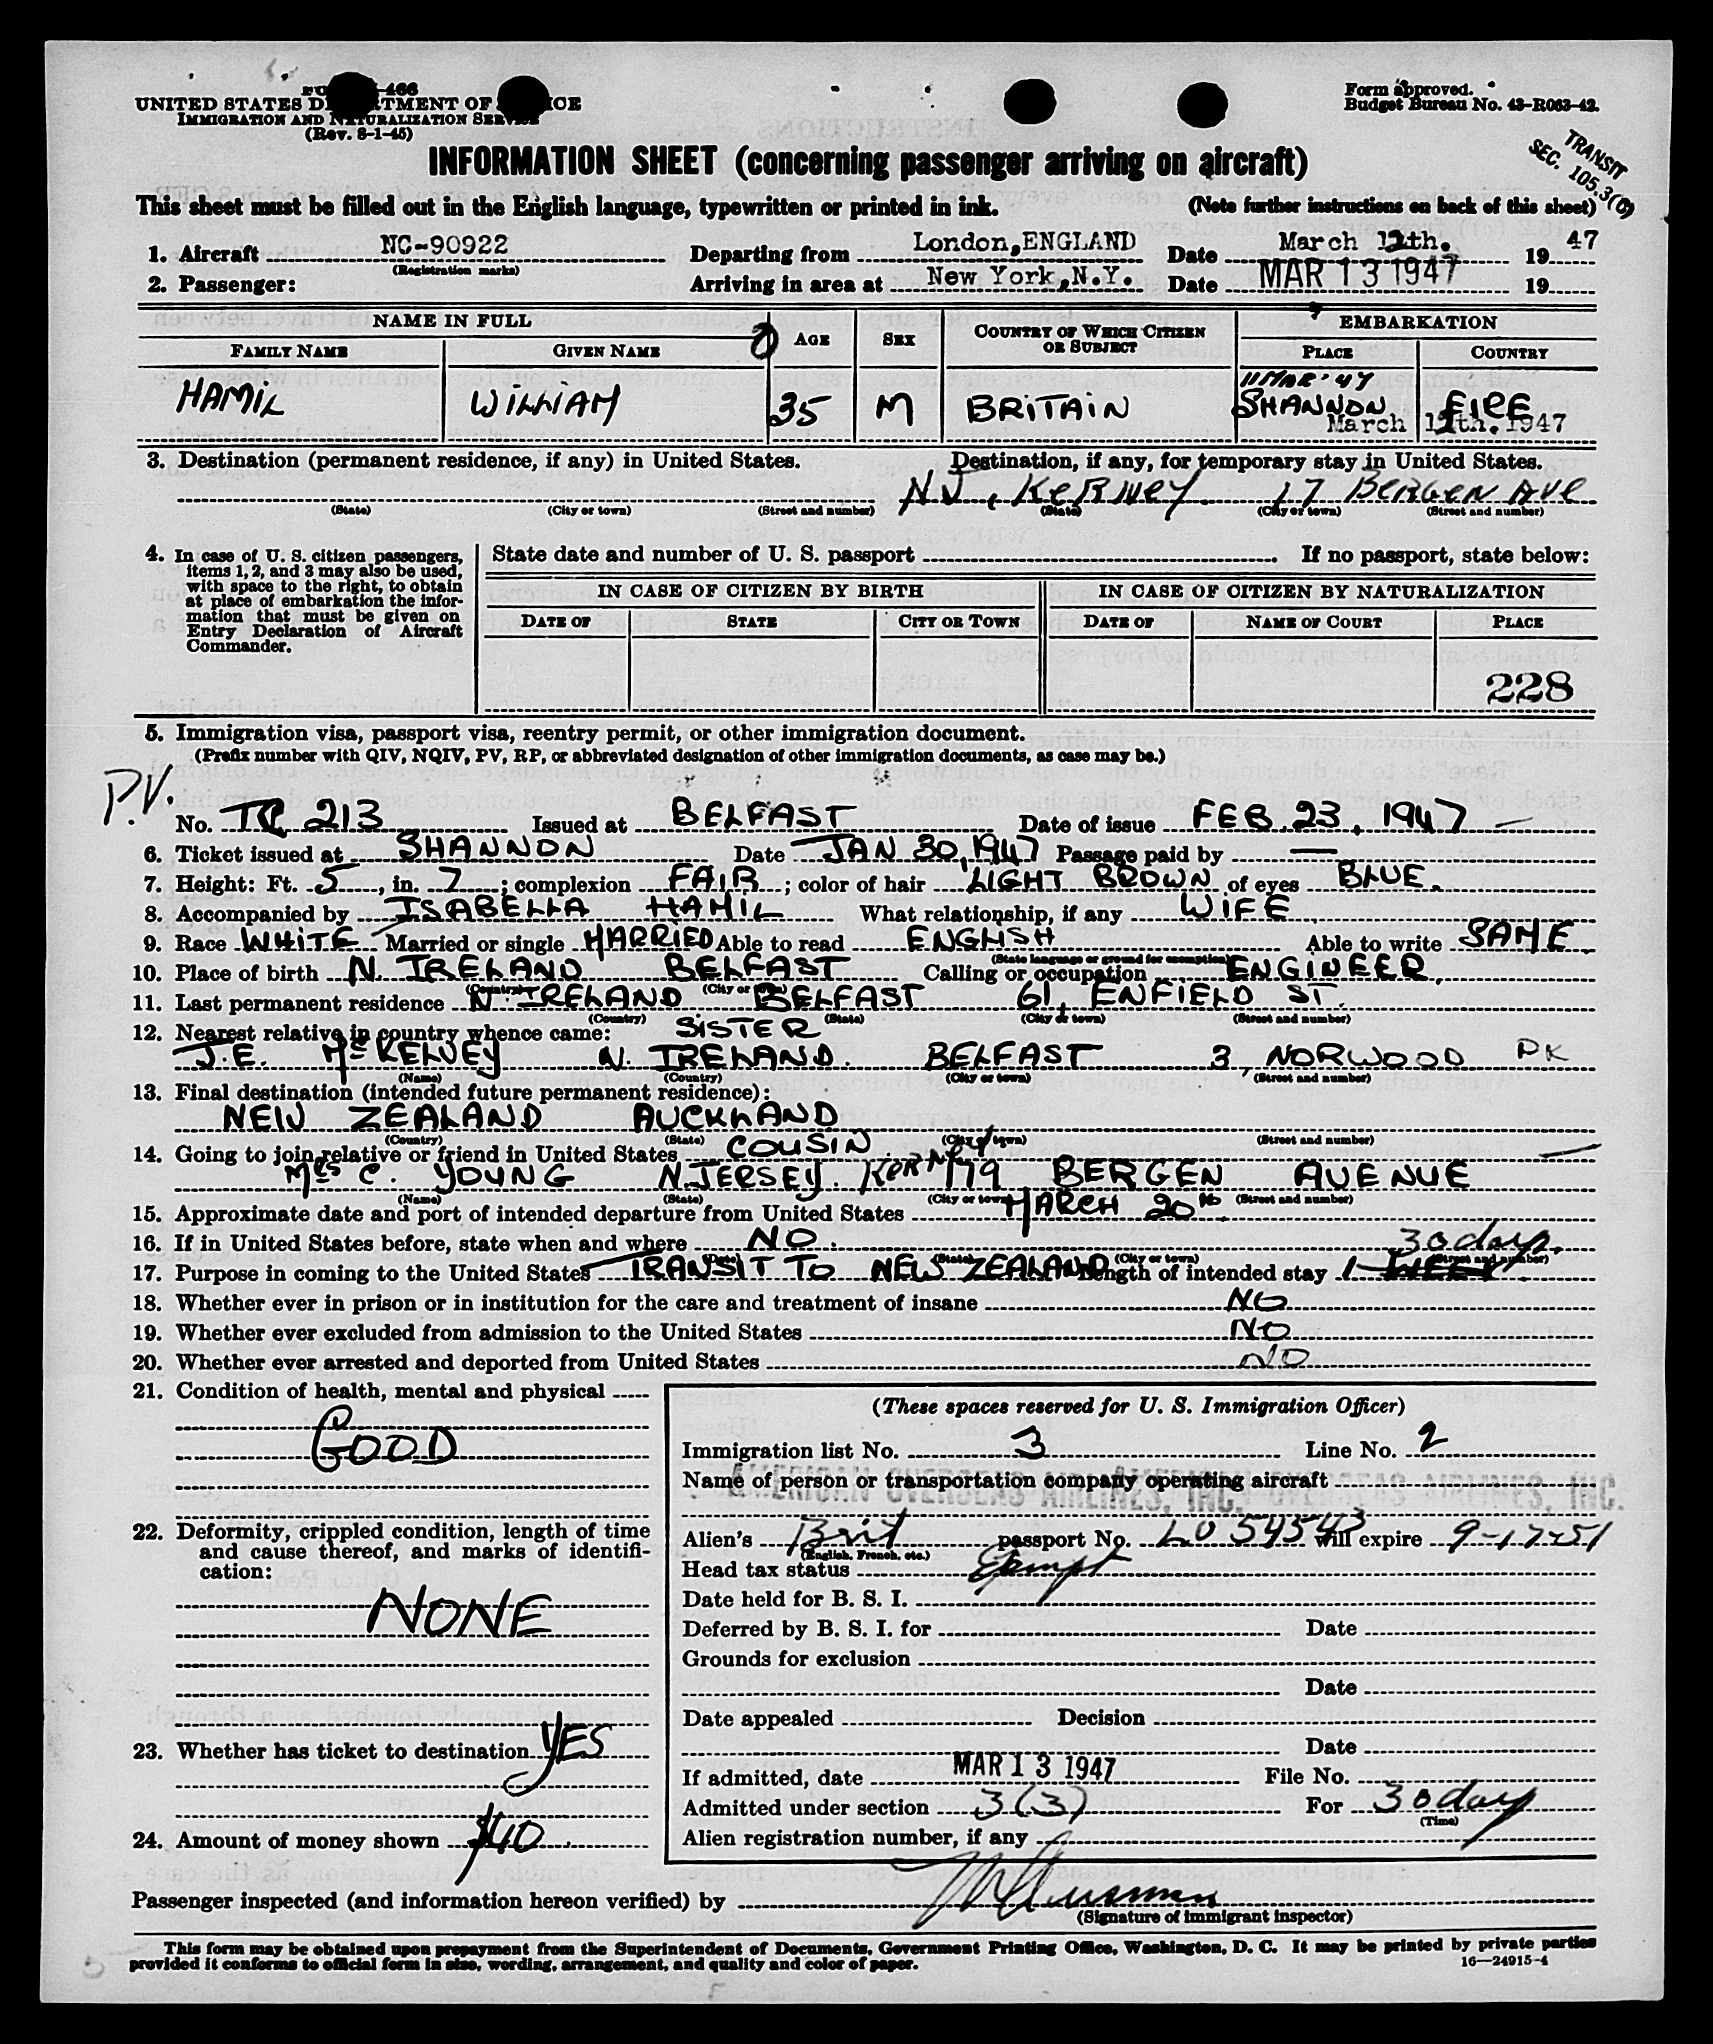 -466
UNITED STATES DEPARTMENT OF JUSTICE
IMMIGRATION AND NATURALIZATION SERVICE
(Rev. 8-1-45)
Form approved.
Budget Bureau No. 43-R063-42.
TRANSIT
SEC. 105.3(C)
INFORMATION SHEET (concerning passenger arriving on aircraft)
This sheet must be filled out in the English language, typewritten or printed in ink. (Note further instructions on back of this sheet)
1. Aircraft NC-90922 Departing from London, ENGLAND Date March 12th. 1947
(Registration marks)
2. Passenger: Arriving in area at New York, N.Y. Date MAR 13 1947 19
NAME IN FULL AGE SEX COUNTRY OF WHICH CITIZEN OR SUBJECT EMBARKATION
FAMILY NAME GIVEN NAME PLACE COUNTRY
11 MAR '47
HAMIL WILLIAM 35 M BRITAIN SHANNON EIRE
March 12th. 1947
3. Destination (permanent residence, if any) in United States. Destination, if any, for temporary stay in United States.
NJ, KERNEY 17 BERGEN AVE
(State) (City or town) (Street and number) (State) (City or town) (Street and number)
4. In case of U. S. citizen passengers, items 1, 2, and 3 may also be used, with space to the right, to obtain at place of embarkation the information that must be given on Entry Declaration of Aircraft Commander.
State date and number of U. S. passport . If no passport, state below:
IN CASE OF CITIZEN BY BIRTH IN CASE OF CITIZEN BY NATURALIZATION
DATE OF STATE CITY OR TOWN DATE OF NAME OF COURT PLACE
228
5. Immigration visa, passport visa, reentry permit, or other immigration document.
(Prefix number with QIV, NQIV, PV, RP, or abbreviated designation of other immigration documents, as case may be.)
P.V.
No. TC 213 Issued at BELFAST Date of issue FEB. 23, 1947 —
6. Ticket issued at SHANNON Date JAN 30, 1947 Passage paid by —
7. Height: Ft. 5, in. 7; complexion FAIR; color of hair LIGHT BROWN of eyes BLUE.
8. Accompanied by ISABELLA HAMIL What relationship, if any WIFE
9. Race WHITE Married or single MARRIED Able to read ENGLISH Able to write SAME
(State language or ground for exemption)
10. Place of birth N. IRELAND BELFAST Calling or occupation ENGINEER.
(Country) (City or town)
11. Last permanent residence N. IRELAND BELFAST 61, ENFIELD ST.
(Country) (State) (City or town) (Street and number)
12. Nearest relative in country whence came: SISTER
J.E. McKELVEY N. IRELAND. BELFAST 3, NORWOOD PK
(Name) (Country) (City or town) (Street and number)
13. Final destination (intended future permanent residence):
NEW ZEALAND AUCKLAND
(Country) (State) (City or town) (Street and number)
14. Going to join relative or friend in United States COUSIN
Mrs C. YOUNG N. JERSEY. KERNEY 179 BERGEN AVENUE
(Name) (State) (City or town) (Street and number)
15. Approximate date and port of intended departure from United States MARCH 20th.
16. If in United States before, state when and where NO.
(Date) (State) (City or town) (Street and number)
30 days.
17. Purpose in coming to the United States TRANSIT TO NEW ZEALAND Length of intended stay 1 WEEK.
18. Whether ever in prison or in institution for the care and treatment of insane NO
19. Whether ever excluded from admission to the United States NO
20. Whether ever arrested and deported from United States NO
21. Condition of health, mental and physical
GOOD
22. Deformity, crippled condition, length of time and cause thereof, and marks of identification:
NONE
23. Whether has ticket to destination YES
24. Amount of money shown $40.
(These spaces reserved for U. S. Immigration Officer)
Immigration list No. 3 Line No. 2
Name of person or transportation company operating aircraft
AMERICAN OVERSEAS AIRLINES, INC. OVERSEAS AIRLINES, INC.
Alien's Brit passport No. LO 54543 will expire 9-17-51
(English, French, etc.)
Head tax status Exempt
Date held for B. S. I.
Deferred by B. S. I. for Date
Grounds for exclusion
Date
Date appealed Decision
Date
If admitted, date MAR 13 1947 File No.
Admitted under section 3(3) For 30 days
(Time)
Alien registration number, if any
Passenger inspected (and information hereon verified) by
(Signature of immigrant inspector)
This form may be obtained upon prepayment from the Superintendent of Documents, Government Printing Office, Washington, D. C. It may be printed by private parties
provided it conforms to official form in size, wording, arrangement, and quality and color of paper.
16—24915-4